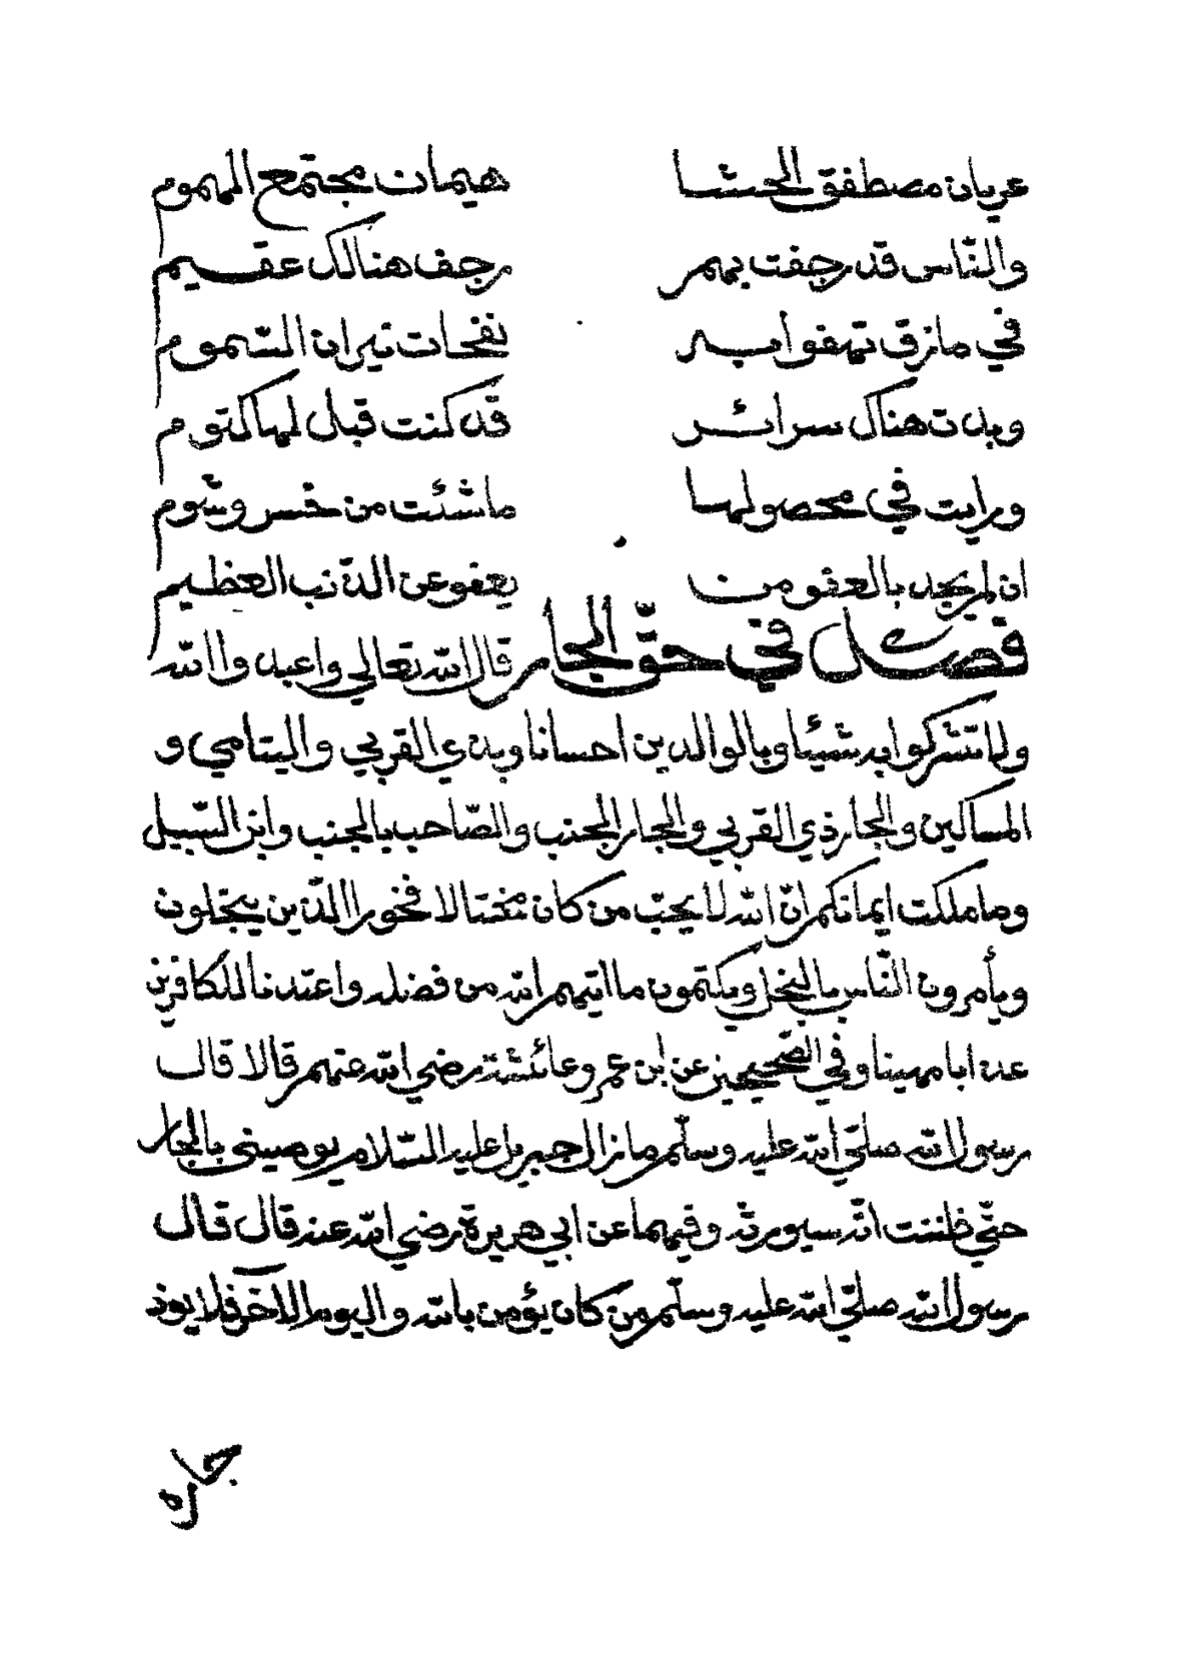 عريان مصطفق الحشا هيمان مجتمع الهموم
والنّاس قد رجفت بهم رجف هنالك عقيم
في مازق تهفوا به نفحات نيران السّموم
وبدت هناك سرائر قد كنت قبل لها كتوم
ورايت في محصولها ماشئت من خسر وشوم
ان لم يجد بالعفو من يعفو عن الذّنب العظيم
فصل في حقّ الجار قال الله تعالي واعبدوا الله
ولا تشركوا به شيئا وبالوالدين احسانا وبذي القربي واليتامي و
المساكين والجار ذي القربي والجار الجنب والصّاحب بالجنب وابن السّبيل
وما ملكت ايمانكم انّ الله لا يحبّ من كان مختالا فخورا الذّين يبخلون
ويأمرون النّاس بالبخل ويكتمون ما اتيهم الله من فضله واعتدنا للكافرين
عذابا مهينا وفي الصّحيحين عن ابن عمر وعائشة رضي الله عنهم قالا قال
رسول الله صلّي الله عليه وسلّم مازال جبريل عليه السّلام يوصيني بالجار
حتّي ظننت انّه سيورثه وفيهما عن ابي هريرة رضي الله عنه قال قال
رسول الله صلّي الله عليه وسلّم من كان يؤمن بالله واليوم الآخر فلا يوذ
جاره